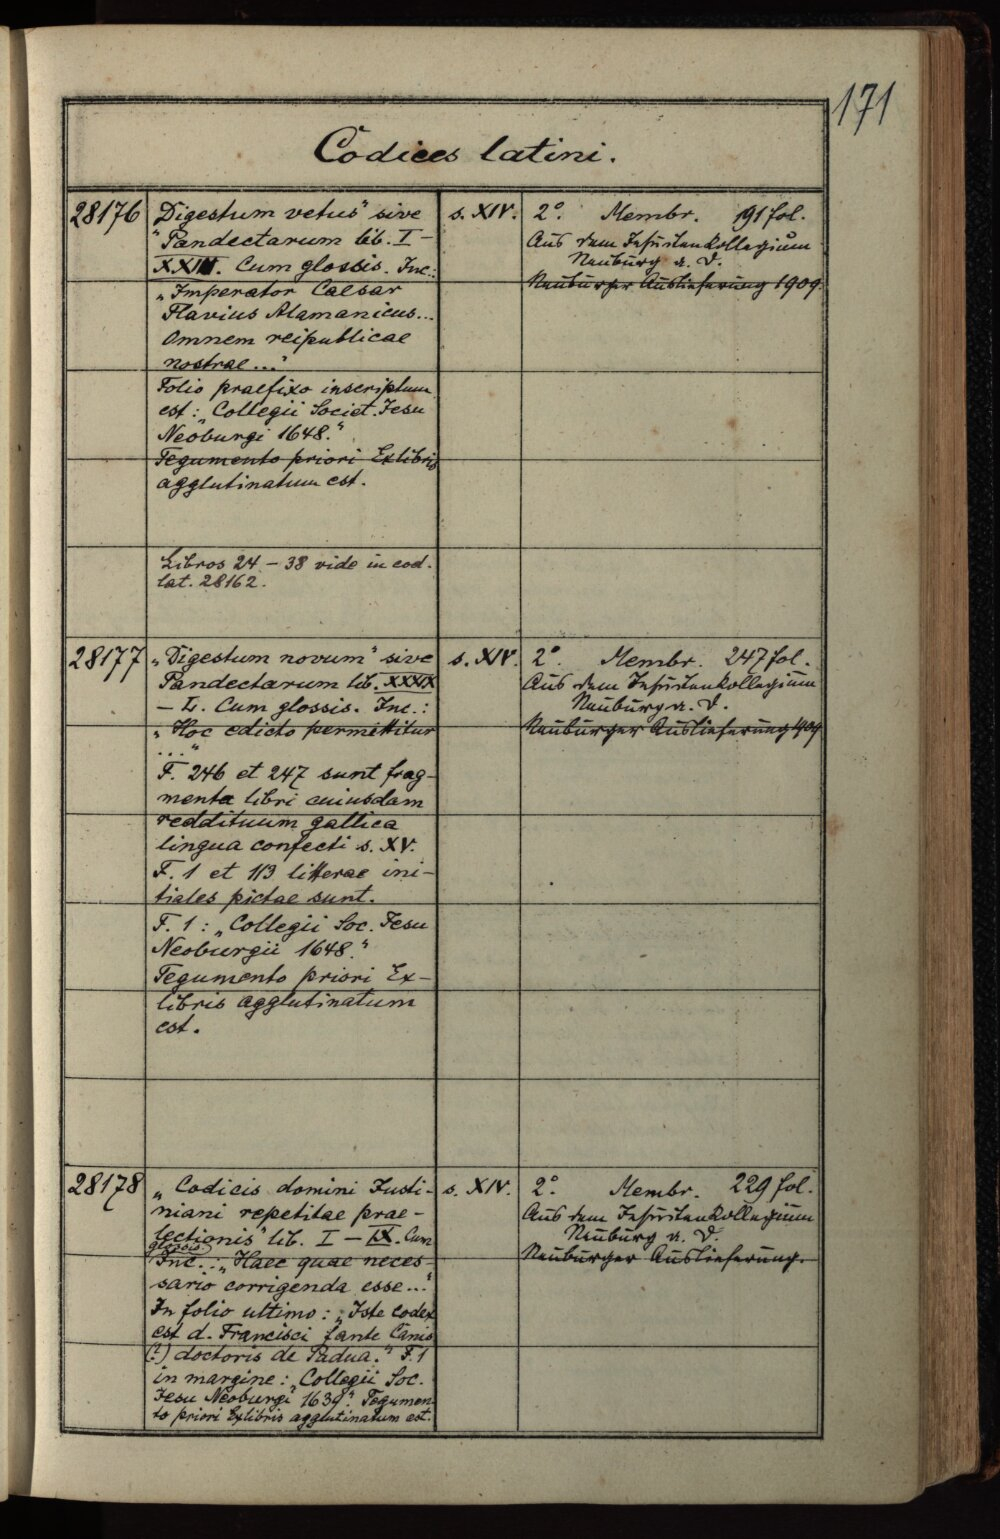 171
Codices latini.
28176
„Digestum vetus" sive
Pandectarum lib. I –
XXIII. Cum glossis. Inc.:
„Imperator Caesar
Flavius Alamanicus...
Omnem reipublicae
nostrae ..."
Folio praefixo inscriptum
est: „Collegii Societ. Jesu
Neoburgi 1648."
Tegumento priori Exlibris
agglutinatum est.
Libros 24 – 38 vide in cod.
lat. 28162.
s. XIV.
2°. Membr. 191 fol.
Aus dem Jesuitenkollegium
Neuburg a. D.
Neuburger Auslieferung 1909
28177
„Digestum novum" sive
Pandectarum lib. XXXIX
– L. Cum glossis. Inc.:
„Hoc edicto permittitur
..."
F. 246 et 247 sunt frag-
menta libri cuiusdam
reddituum gallica
lingua confecti s. XV.
F. 1 et 113 litterae ini-
tiales pictae sunt.
F. 1: „Collegii Soc. Jesu
Neoburgii 1648."
Tegumento priori Ex-
libris agglutinatum
est.
s. XIV.
2°. Membr. 247 fol.
Aus dem Jesuitenkollegium
Neuburg a. D.
Neuburger Auslieferung 1909
28178
„Codicis domini Justi-
niani repetitae prae-
lectionis" lib. I – IX. Cum
glossis.
Inc.: „Haec quae neces-
sario corrigenda esse..."
In folio ultimo: „Iste codex
est d. Francisci fante Canis
(?) doctoris de Padua." F. 1
in margine: „Collegii Soc.
Jesu Neoburgi 1639." Tegumen-
to priori Exlibris agglutinatum est.
s. XIV.
2°. Membr. 229 fol.
Aus dem Jesuitenkollegium
Neuburg a. D.
Neuburger Auslieferung.